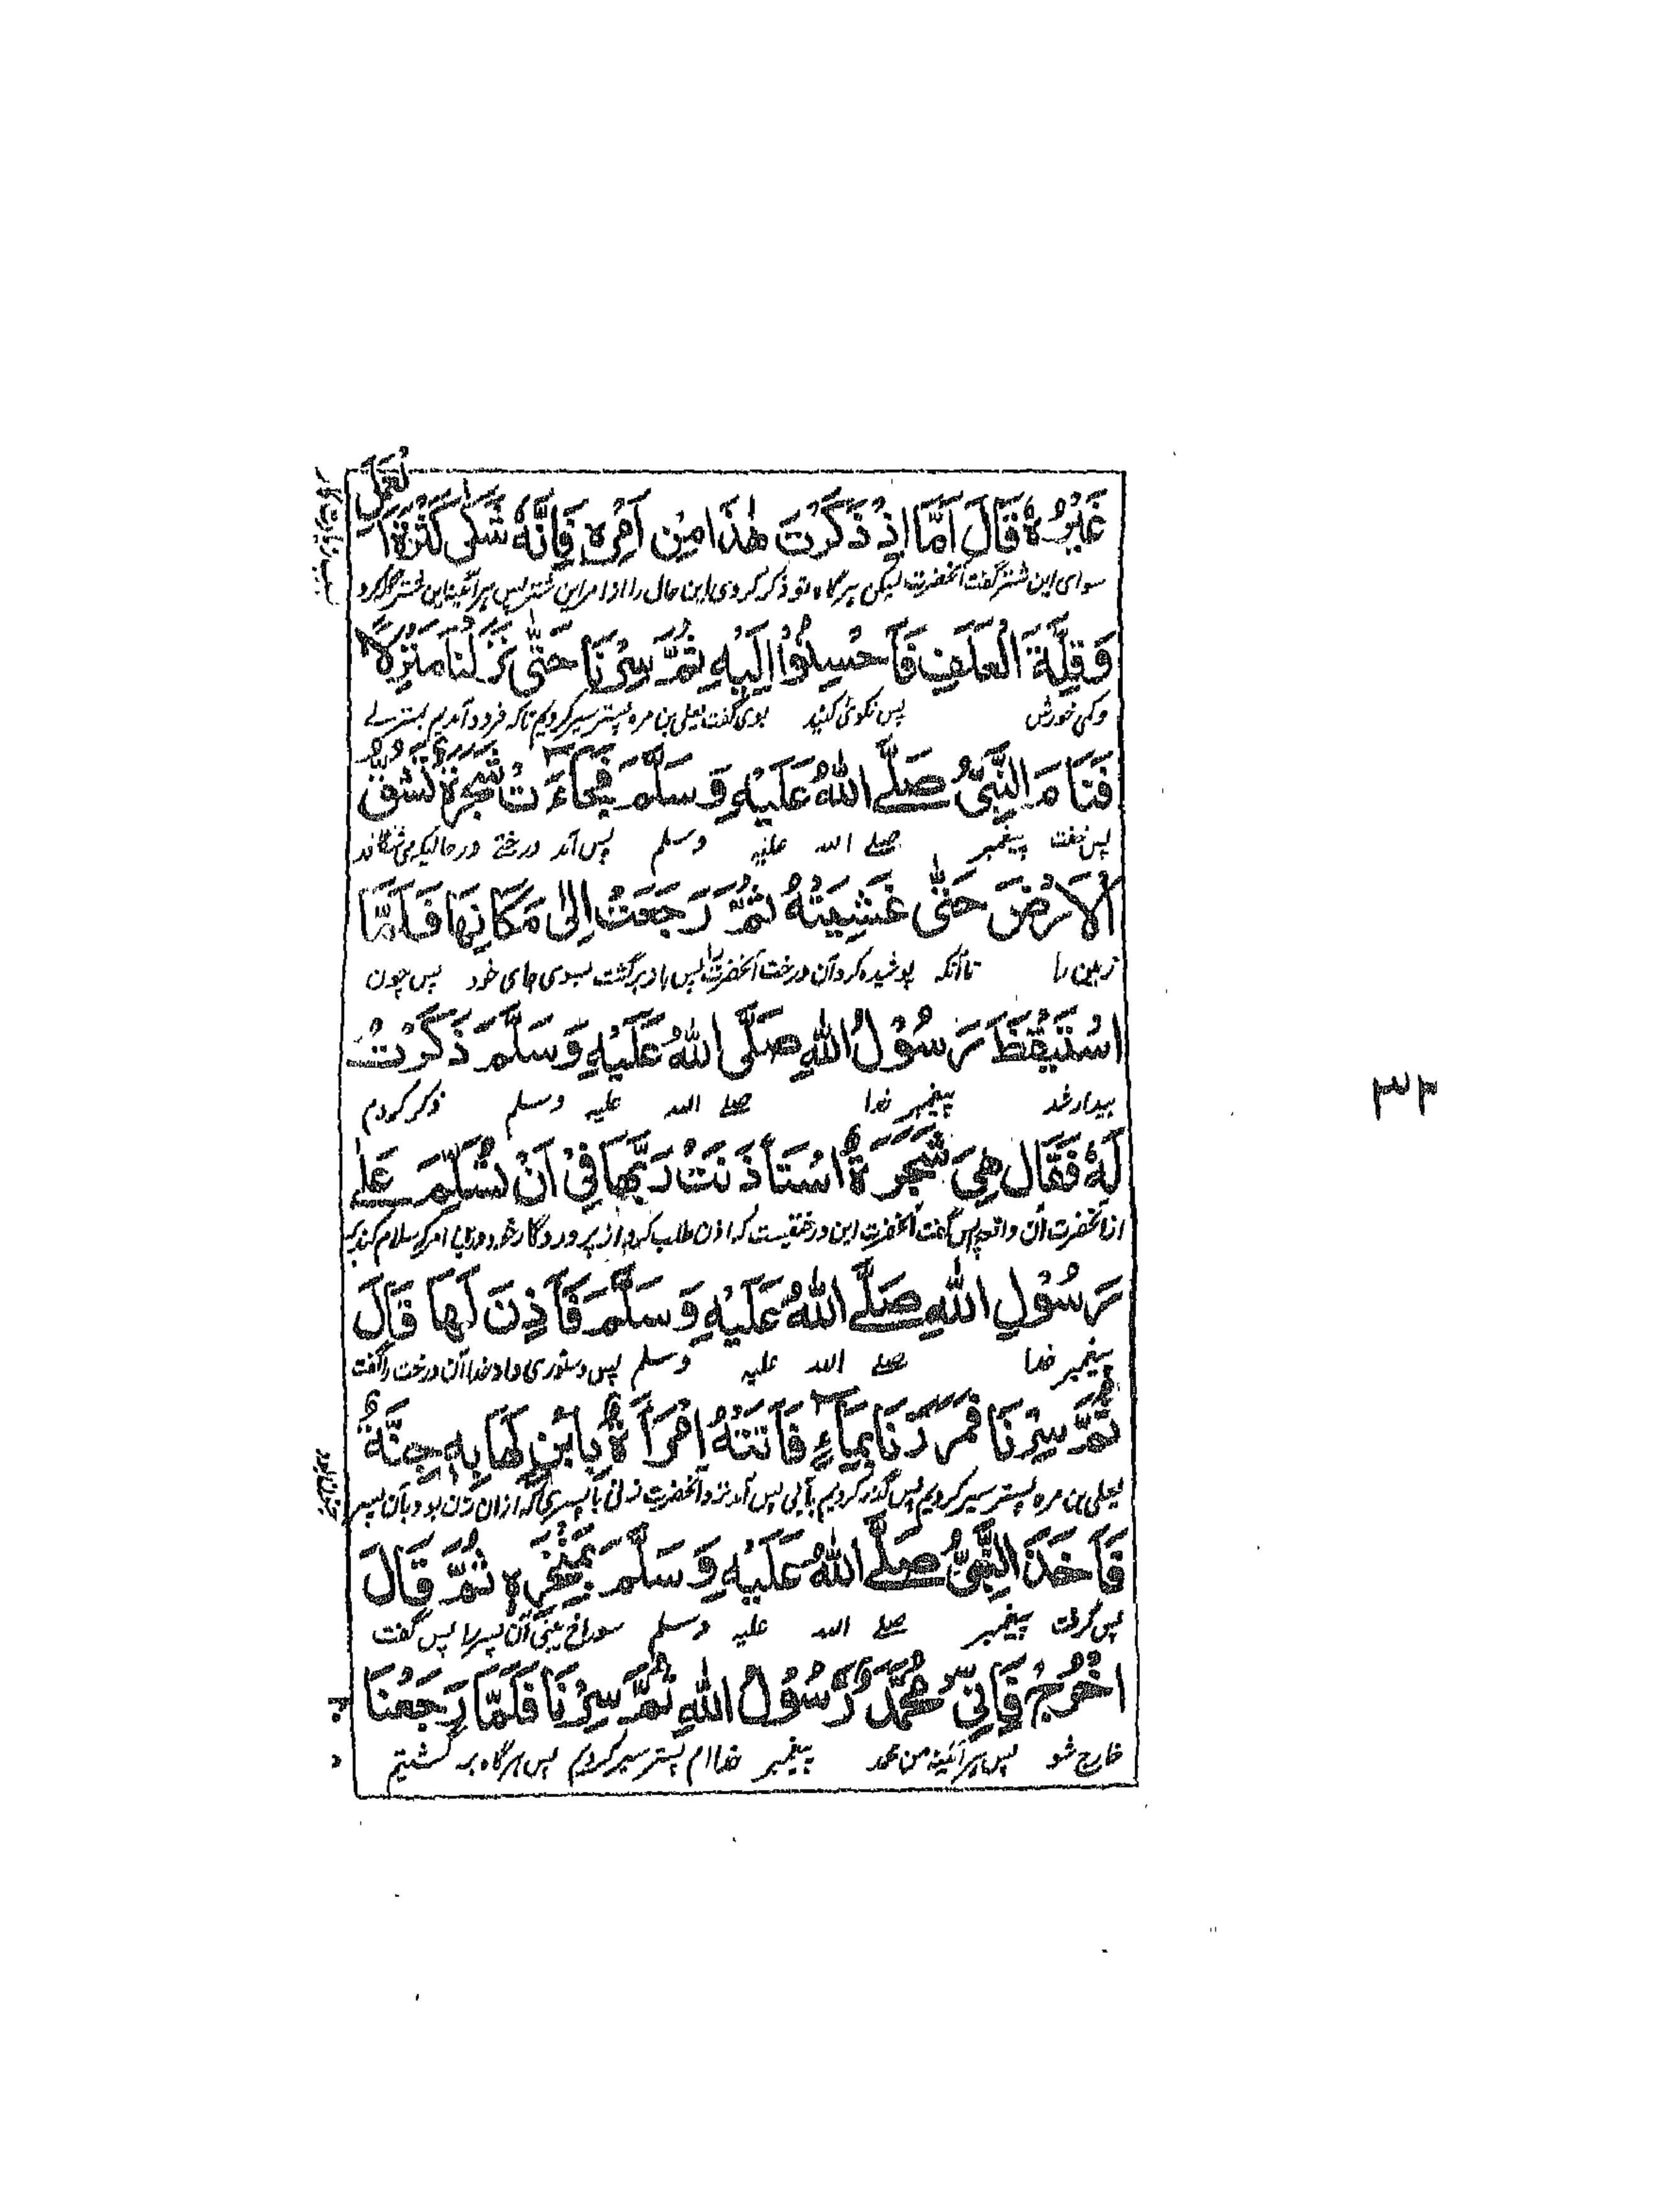 غَيْرُهٗ قَالَ اَمَّا اِذْ ذَكَرْتَ هٰذَا مِنْ اَمْرِهٖ فَاِنَّهٗ شَكٰى كَثْرَةَ الْعَمَلِ
سوای این شتر گفت آنحضرت لیکن هرگاه تو ذکر کردی این حال را از امر این شتر پس هر آئینه این شتر گله کرد
وَقِلَّةَ الْعَلَفِ فَاَحْسِنُوْا اِلَيْهِ ثُمَّ سِرْنَا حَتّٰى نَزَلْنَا مَنْزِلًا
و کمی خورش پس نکوئی کنید بوی گفت یعلی بن مره پستر سیر کردیم تاکه فرود آمدیم بمنزلے
فَنَامَ النَّبِيُّ صَلَّے اللهُ عَلَيْهِ وَسَلَّمَ فَجَآءَتْ شَجَرَةٌ تَشُقُّ
پس خفت پیغمبر صلے الله علیه وسلم پس آمد درختے در حالیکه می شگافد
الْاَرْضَ حَتّٰى غَشِيَتْهُ ثُمَّ رَجَعَتْ اِلٰى مَكَانِهَا فَلَمَّا
زمین را تا آنکه پوشیده کرد آن درخت آنحضرت را پس باز برگشت بسوی جای خود پس چون
اسْتَيْقَظَ رَسُوْلُ اللهِ صَلَّى اللهُ عَلَيْهِ وَسَلَّمَ ذَكَرْتُ
بیدار شد پیغمبر خدا صلے الله علیه وسلم ذکر کردم
لَهٗ فَقَالَ هِيَ شَجَرَةٌ اسْتَأْذَنَتْ رَبَّهَا فِيْ اَنْ تُسَلِّمَ عَلٰے
از آنحضرت آن واقعه پس گفت آنحضرت این درختیست که اذن طلب کرد از پروردگار خود در این امر که سلام کند بر
رَسُوْلِ اللهِ صَلَّے اللهُ عَلَيْهِ وَسَلَّمَ فَاَذِنَ لَهَا قَالَ
پیغمبر خدا صلے الله علیه وسلم پس دستوری داد خدا آن درخت را گفت
ثُمَّ سِرْنَا فَمَرَرْنَا بِمَآءٍ فَاَتَتْهُ امْرَاَةٌ بِابْنٍ لَهَا بِهٖ جِنَّةٌ
یعلی بن مره پستر سیر کردیم پس گذر کردیم بآبی پس آمد نزد آنحضرت زنی با پسری که از آن زن بود بآن پسر
فَاَخَذَ النَّبِيُّ صَلَّے اللهُ عَلَيْهِ وَسَلَّمَ بِمَنْخَرِهٖ ثُمَّ قَالَ
پس گرفت پیغمبر صلے الله علیه وسلم سوراخ بینی آن پسر را پس گفت
اخْرُجْ فَاِنِّيْ مُحَمَّدٌ رَّسُوْلُ اللهِ ثُمَّ سِرْنَا فَلَمَّا رَجَعْنَا
خارج شو پس هر آئینه من محمد پیغمبر خداام پستر سیر کردیم پس هرگاه برگشتیم
۳۲